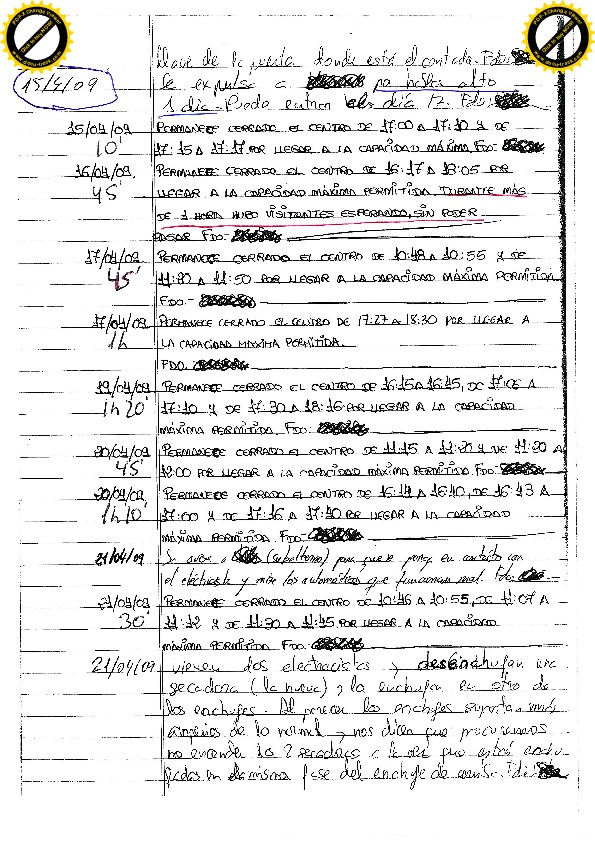 llave de la puerta donde está el contador. Fdo:
15/4/09
Se expulsa a por hablar alto
1 día. Puede entrar el día 17. Fdo:
15/04/09 PERMANECE CERRADO EL CENTRO DE 17:00 A 17:10 Y DE
10' 17:15 A 17:17 POR LLEGAR A LA CAPACIDAD MÁXIMA. FDO:
16/04/09. PERMANECE CERRADO EL CENTRO DE 16:17 A 18:05 POR
45' LLEGAR A LA CAPACIDAD MÁXIMA PERMITIDA. DURANTE MÁS
DE 1 HORA HUBO VISITANTES ESPERANDO, SIN PODER
PASAR FDO:
17/04/09 PERMANECE CERRADO EL CENTRO DE 10:48 A 10:55 Y DE
45' A 11:50 POR LLEGAR A LA CAPACIDAD MÁXIMA PERMITIDA
FDO.-
17/04/09 PERMANECE CERRADO EL CENTRO DE 17:27 A 18:30 POR LLEGAR A
1h LA CAPACIDAD MÁXIMA PERMITIDA.
FDO.
19/04/09 PERMANECE CERRADO EL CENTRO DE 16:15 A 16:45, DE 17:05 A
1h 20' 17:10 Y DE 17:30 A 18:16 POR LLEGAR A LA CAPACIDAD
MÁXIMA PERMITIDA. FDO:
20/04/09 PERMANECE CERRADO EL CENTRO DE 11:15 A 11:20 Y DE 11:20 A
45' 12:00 POR LLEGAR A LA CAPACIDAD MÁXIMA PERMITIDA. FDO:
20/04/09 PERMANECE CERRADO EL CENTRO DE 16:14 A 16:40, DE 16:43 A
1h 10' 17:00 Y DE 17:16 A 17:40 POR LLEGAR A LA CAPACIDAD
MÁXIMA PERMITIDA. FDO:
21/04/09 Se avisa a (subalterno) para que se ponga en contacto con
el electricista y mire los automáticos que funcionan mal. Fdo:
21/04/09 PERMANECE CERRADO EL CENTRO DE 10:46 A 10:55, DE 11:07 A
30' 11:12 Y DE 11:30 A 11:45 POR LLEGAR A LA CAPACIDAD
MÁXIMA PERMITIDA. FDO:
21/04/09 vienen dos electricistas y desenchufan una
secadora (la nueva) y la enchufan en otro de
los enchufes. Al parecer los enchufes soportan más
amperios de lo normal y nos dicen que procuremos
no encender las 2 secadoras a la vez que están enchu-
fadas en la misma fase del enchufe de Fdo: